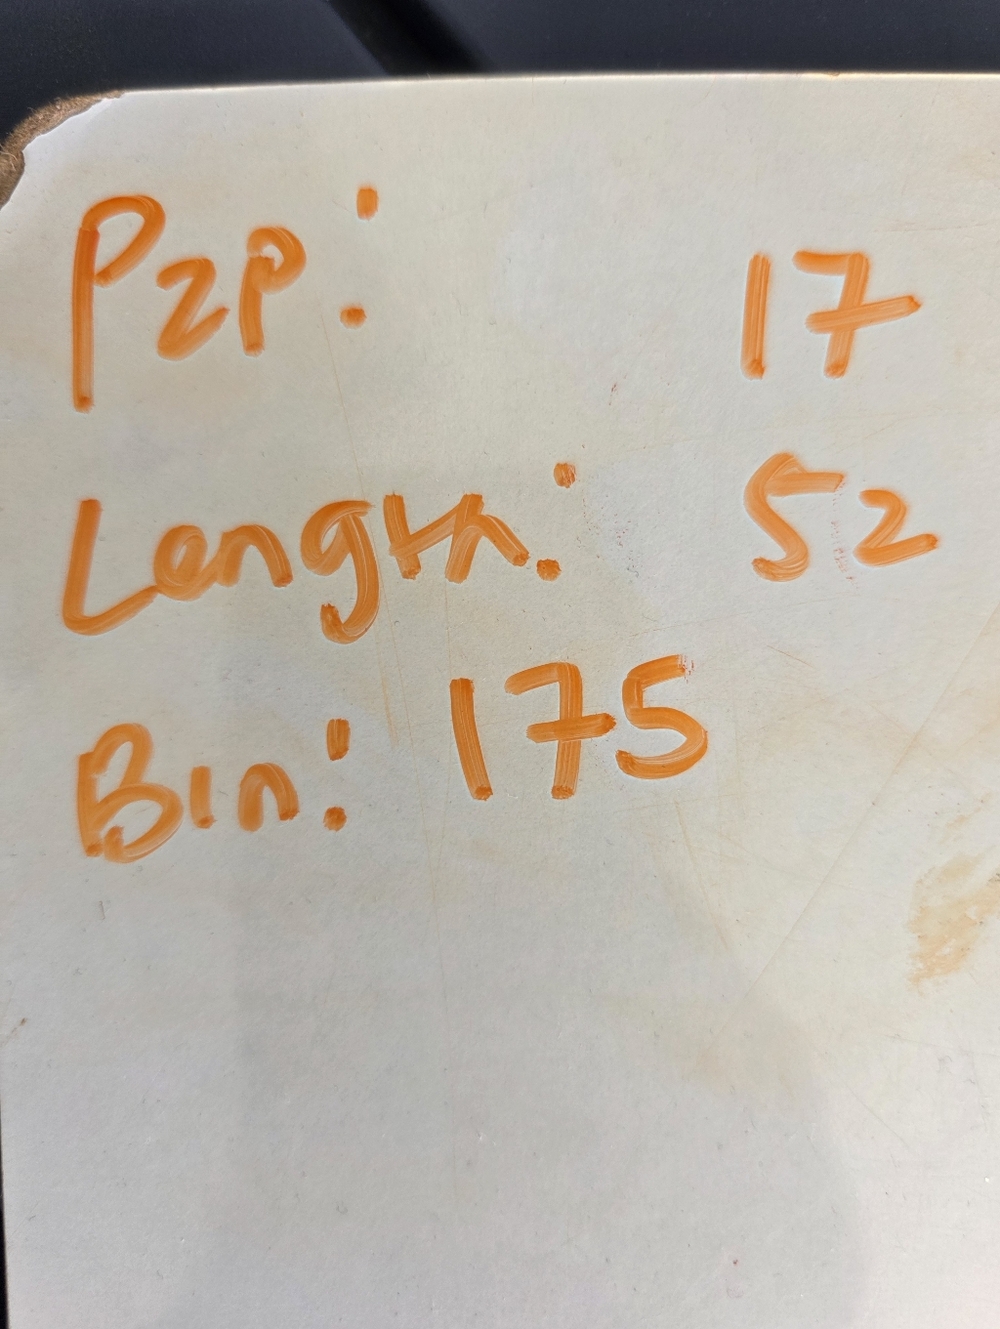 P2P: 17
Length: 52
Bin: 175